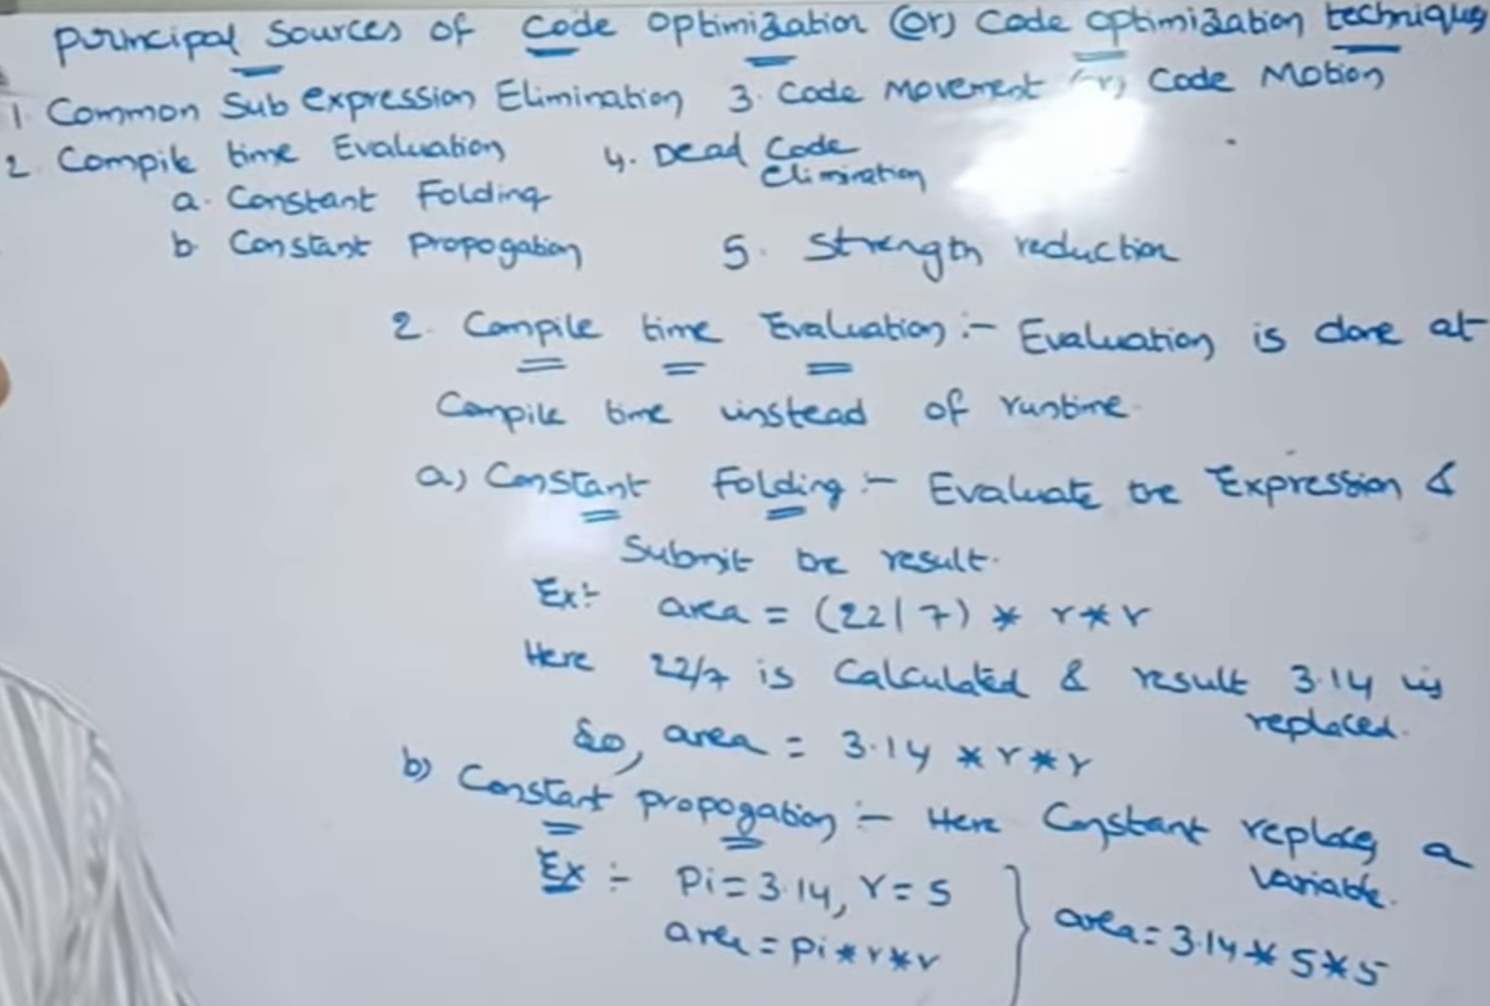 Principal Sources of Code Optimization (or) Code optimization techniques
1. Common Sub expression Elimination 3. Code Movement (or) Code Motion
2. Compile time Evaluation 4. Dead Code Elimination
a. Constant Folding
b. Constant Propogation 5. Strength reduction
2. Compile time Evaluation :- Evaluation is done at
Compile time instead of runtime.
a) Constant Folding :- Evaluate the Expression &
Submit the result.
Ex:- area = (22/7) * r*r
Here 22/7 is Calculated & result 3.14 is replaced.
So, area = 3.14 * r * r
b) Constant propogation :- Here Constant replaces a variable.
Ex :- Pi=3.14, r=5
area = Pi * r * r } area = 3.14 * 5 * 5